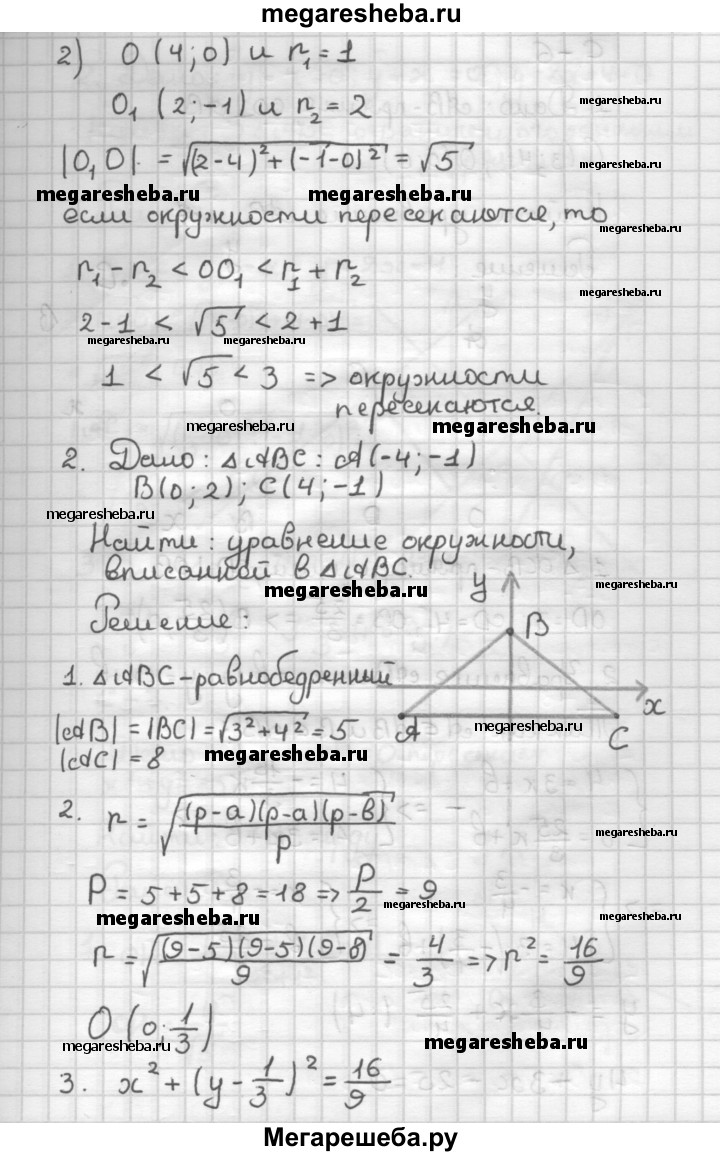 megaresheba.ru
2) O (4;0) и r₁ = 1
O₁ (2;-1) и r₂ = 2
megaresheba.ru
|O₁O| = √((2-4)²+(-1-0)²) = √5
megaresheba.ru megaresheba.ru
если окружности пересекаются, то
megaresheba.ru
r₁ - r₂ < OO₁ < r₁ + r₂
megaresheba.ru
2-1 < √5 < 2+1
megaresheba.ru megaresheba.ru
1 < √5 < 3 => окружности
пересекаются.
megaresheba.ru megaresheba.ru
2. Дано: △ABC: A(-4;-1)
B(0;2); C(4;-1)
megaresheba.ru
Найти: уравнение окружности,
вписанной в △ABC.
megaresheba.ru megaresheba.ru
Решение:
y
B
1. △ABC – равнобедренний
x
|AB| = |BC| = √(3²+4²) = 5
A C
megaresheba.ru
|AC| = 8
megaresheba.ru
2. r = √((p-a)(p-a)(p-b)/p)
megaresheba.ru
P = 5+5+8 = 18 => P/2 = 9
megaresheba.ru megaresheba.ru megaresheba.ru
r = √((9-5)(9-5)(9-8)/9) = 4/3 => r² = 16/9
O (0; 1/3)
megaresheba.ru megaresheba.ru
3. x² + (y - 1/3)² = 16/9
Мегарешеба.ру